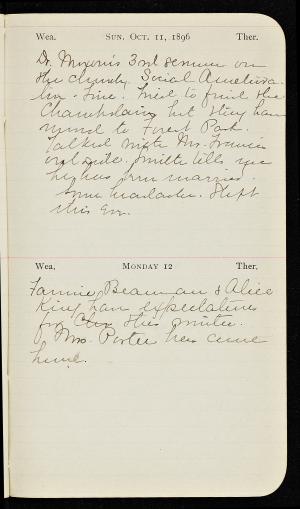 Wea. SUN. OCT. 11, 1896 Ther.
Dr. 3rd sermon on
the church. Social Ameliora
tion - fine. Tried to find the
but they have
moved to Forest Park.
Talked with Mrs. Francis
outside. tells me
he has been married.
Some headache. Slept
this Eve.
Wea. MONDAY 12 Ther.
Fannie Beauman & Alice
King have expectations
for this winter.
Mrs. Porter has come
home.